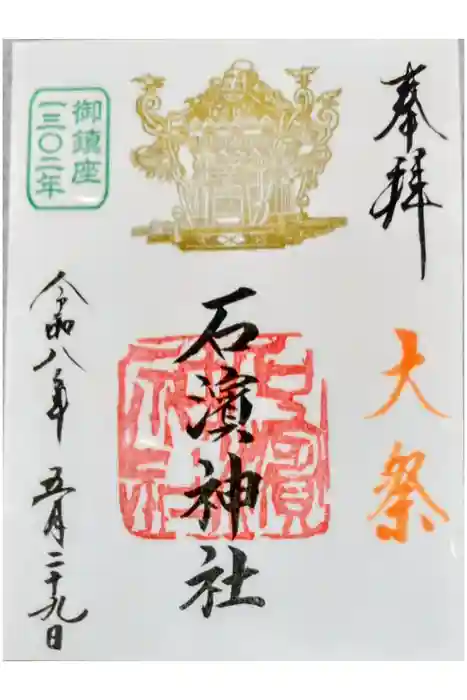 奉拝
大祭
石濱神社
石濱神社
令和八年 五月二十九日
御鎮座
一三〇二年